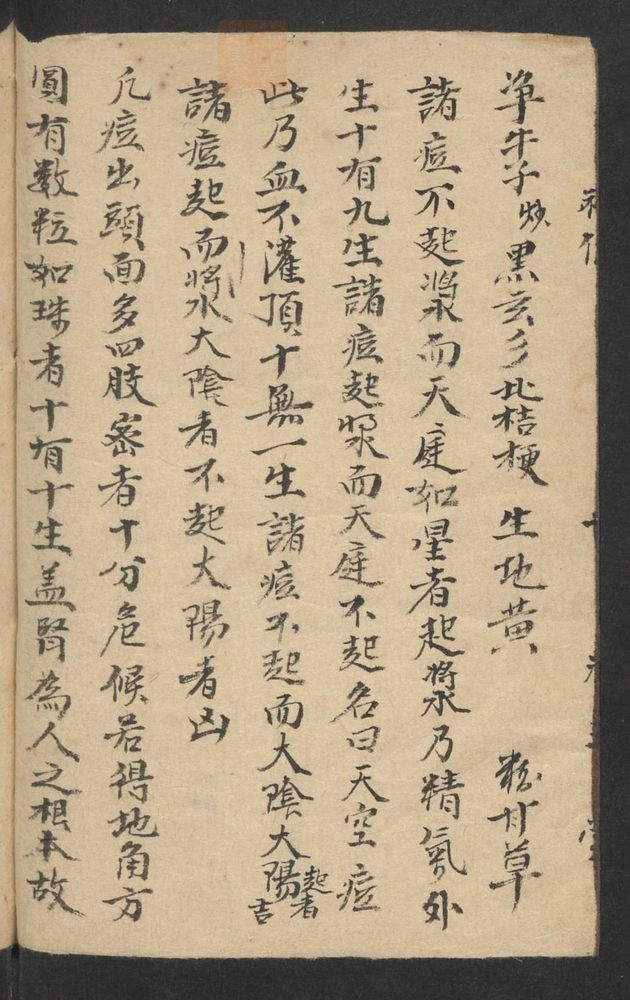 净牛子炒 黑玄参 北桔梗 生地黄 粉甘草
諸痘不起漿而天庭如星者起漿乃精氣外
生十有九生諸痘起漿而天庭不起名曰天空痘
此乃血不灌頂十無一生諸痘不起而大陰大陽起者吉
諸痘起而將水大陰者不起大陽者凶
凡痘出頭面多四肢密者十分危候若得地角方
圓有数粒如珠者十有十生盖腎為人之根本故